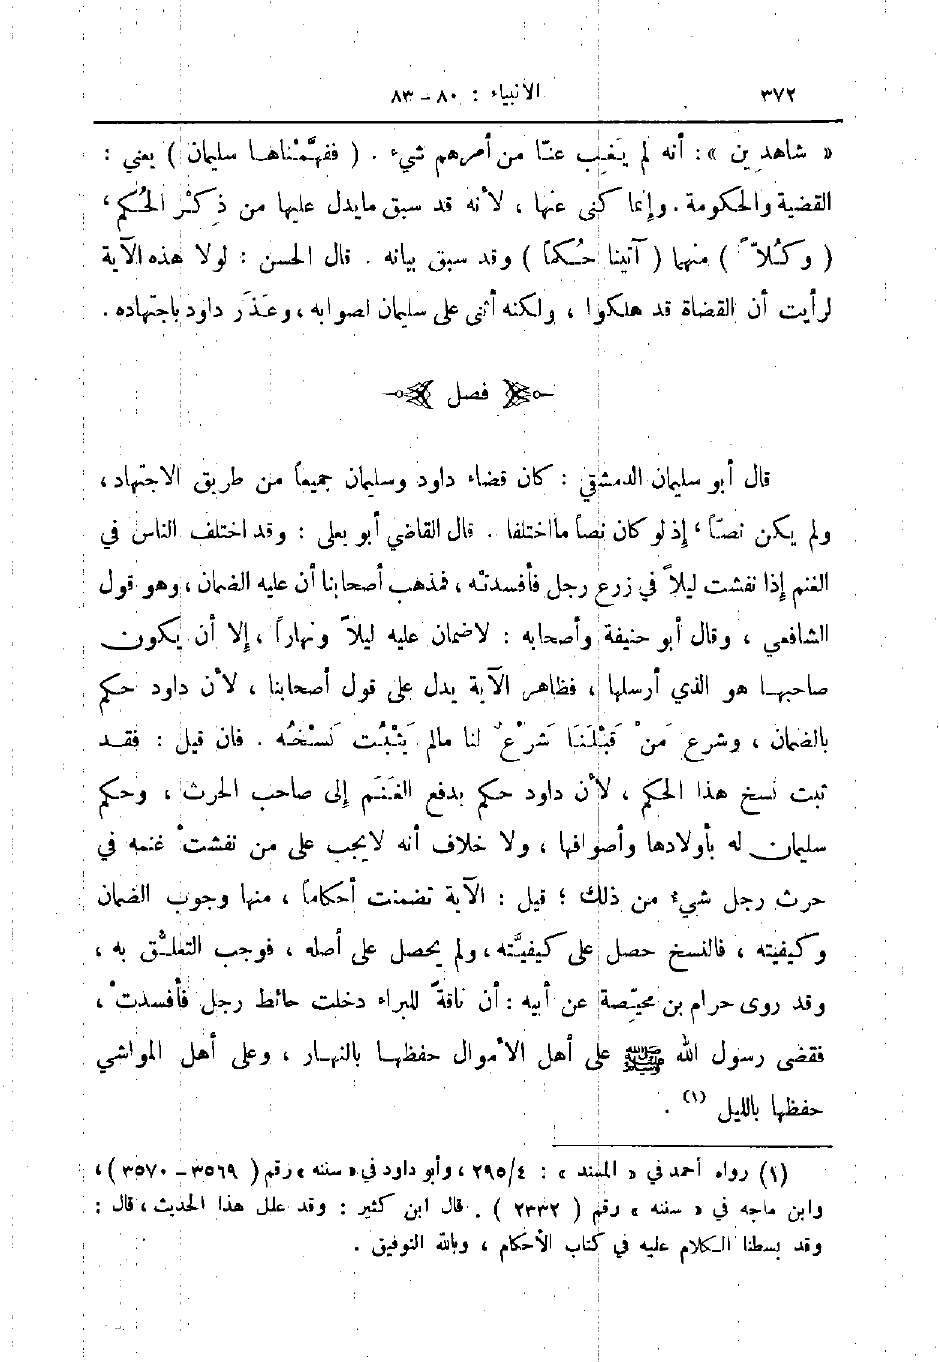 ٣٧٢
الأنبياء : ٨٠ - ٨٣
« شاهدين » : أنه لم يَغِب عنّا من أمرهم شيء . ( ففهَّمْناها سليمان ) يعني :
القضية والحكومة . وإنما كنى عنها ، لأنه قد سبق مايدل عليها من ذِكْر الحُكم ،
( وكُلاًّ ) منهما ( آتينا حُكماً ) وقد سبق بيانه . قال الحسن : لولا هذه الآية
لرأيت أن القضاة قد هلكوا ، ولكنه أثنى على سليمان لصوابه ، وعَذَر داود باجتهاده .
فصل
قال أبو سليمان الدمشقي : كان قضاء داود وسليمان جميعاً من طريق الاجتهاد ،
ولم يكن نصّاً ، إذ لو كان نصاً مااختلفا . قال القاضي أبو يعلى : وقد اختلف الناس في
الغنم إذا نفشت ليلاً في زرع رجل فأفسدته ، فمذهب أصحابنا أن عليه الضمان ، وهو قول
الشافعي ، وقال أبو حنيفة وأصحابه : لاضمان عليه ليلاً ونهاراً ، إلا أن يكون
صاحبها هو الذي أرسلها ، فظاهر الآية يدل على قول أصحابنا ، لأن داود حكم
بالضمان ، وشرع مَنْ قَبْلَنَا شَرْعٌ لنا مالم يَثْبُت نَسْخُه . فان قيل : فقد
ثبت نسخ هذا الحكم ، لأن داود حكم بدفع الغَنَم إلى صاحب الحرث ، وحكم
سليمان له بأولادها وأصوافها ، ولا خلاف أنه لايجب على من نفشتْ غنمه في
حرث رجل شيء من ذلك ؛ قيل : الآية تضمنت أحكاماً ، منها وجوب الضمان
وكيفيته ، فالنسخ حصل على كيفيَّته ، ولم يحصل على أصله ، فوجب التعلُّق به ،
وقد روى حرام بن محيّصة عن أبيه : أن ناقةً للبراء دخلت حائط رجل فأفسدتْ ،
فقضى رسول الله ﷺ على أهل الأموال حفظها بالنهار ، وعلى أهل المواشي
حفظها بالليل (١) .
(١) رواه أحمد في « المسند » : ٢٩٥/٤ ، وأبو داود في « سننه » رقم ( ٣٥٦٩ - ٣٥٧٠ ) ،
وابن ماجه في « سننه » رقم ( ٢٣٣٢ ) . قال ابن كثير : وقد علل هذا الحديث ، قال :
وقد بسطنا الكلام عليه في كتاب الأحكام ، وبالله التوفيق .